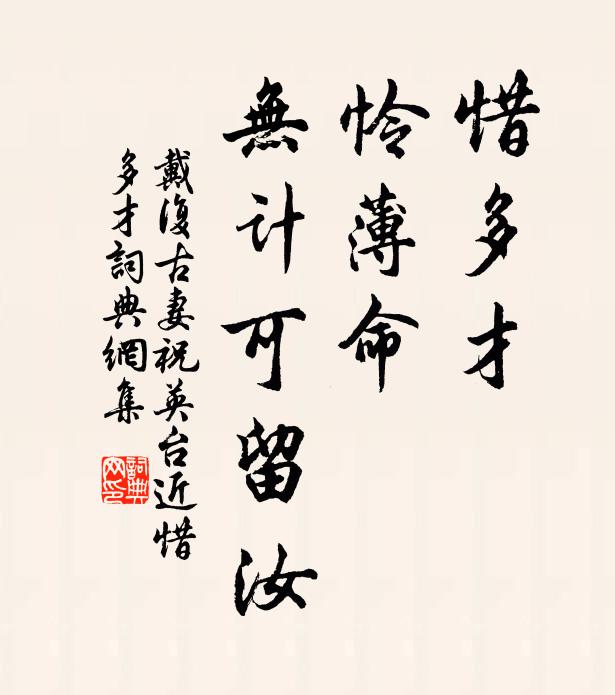 惜多才
怜薄命
無计可留汝
戴復古妻祝英台近惜
多才詞典網集
詞典
网印